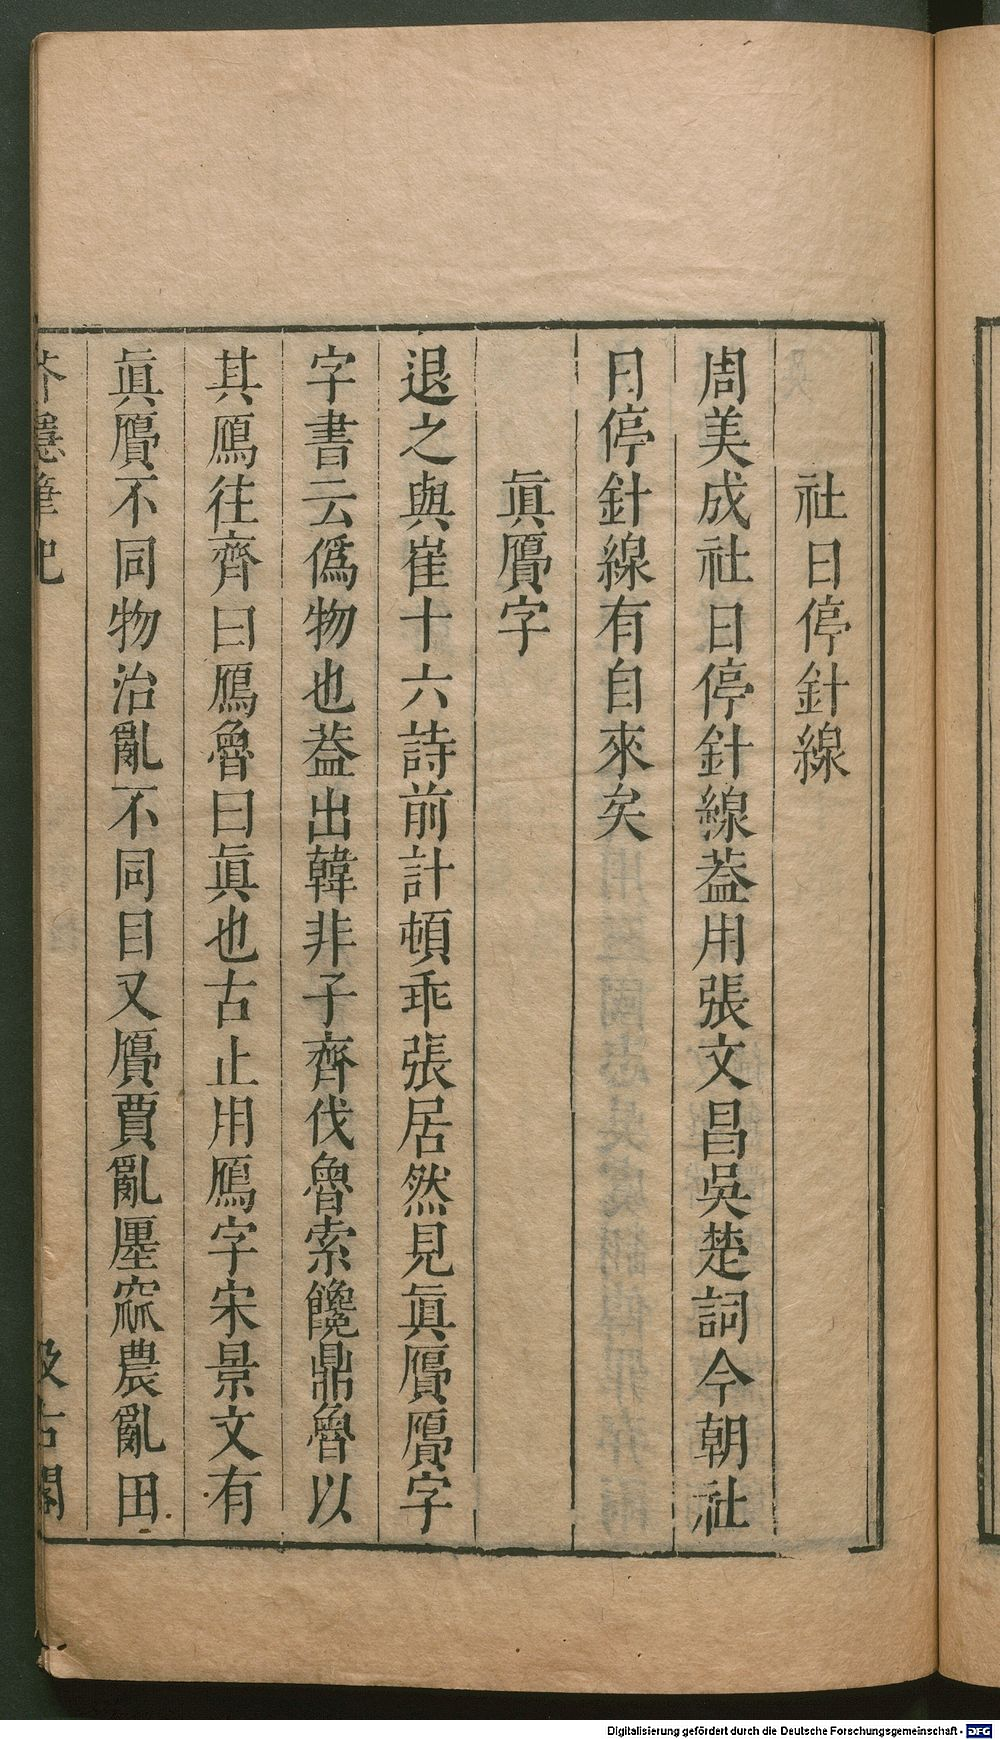 社日停針線
周美成社日停針線葢用張文昌吳楚詞今朝社
日停針線有自來矣
眞贗字
退之與崔十六詩前計頓乖張居然見眞贗贗字
字書云僞物也葢出韓非子齊伐魯索饞鼎魯以
其鴈往齊曰鴈魯曰眞也古止用鴈字宋景文有
眞贗不同物治亂不同目又贗賈亂廛窳農亂田
芥隱筆記
汲古閣
Digitalisierung gefördert durch die Deutsche Forschungsgemeinschaft - DFG